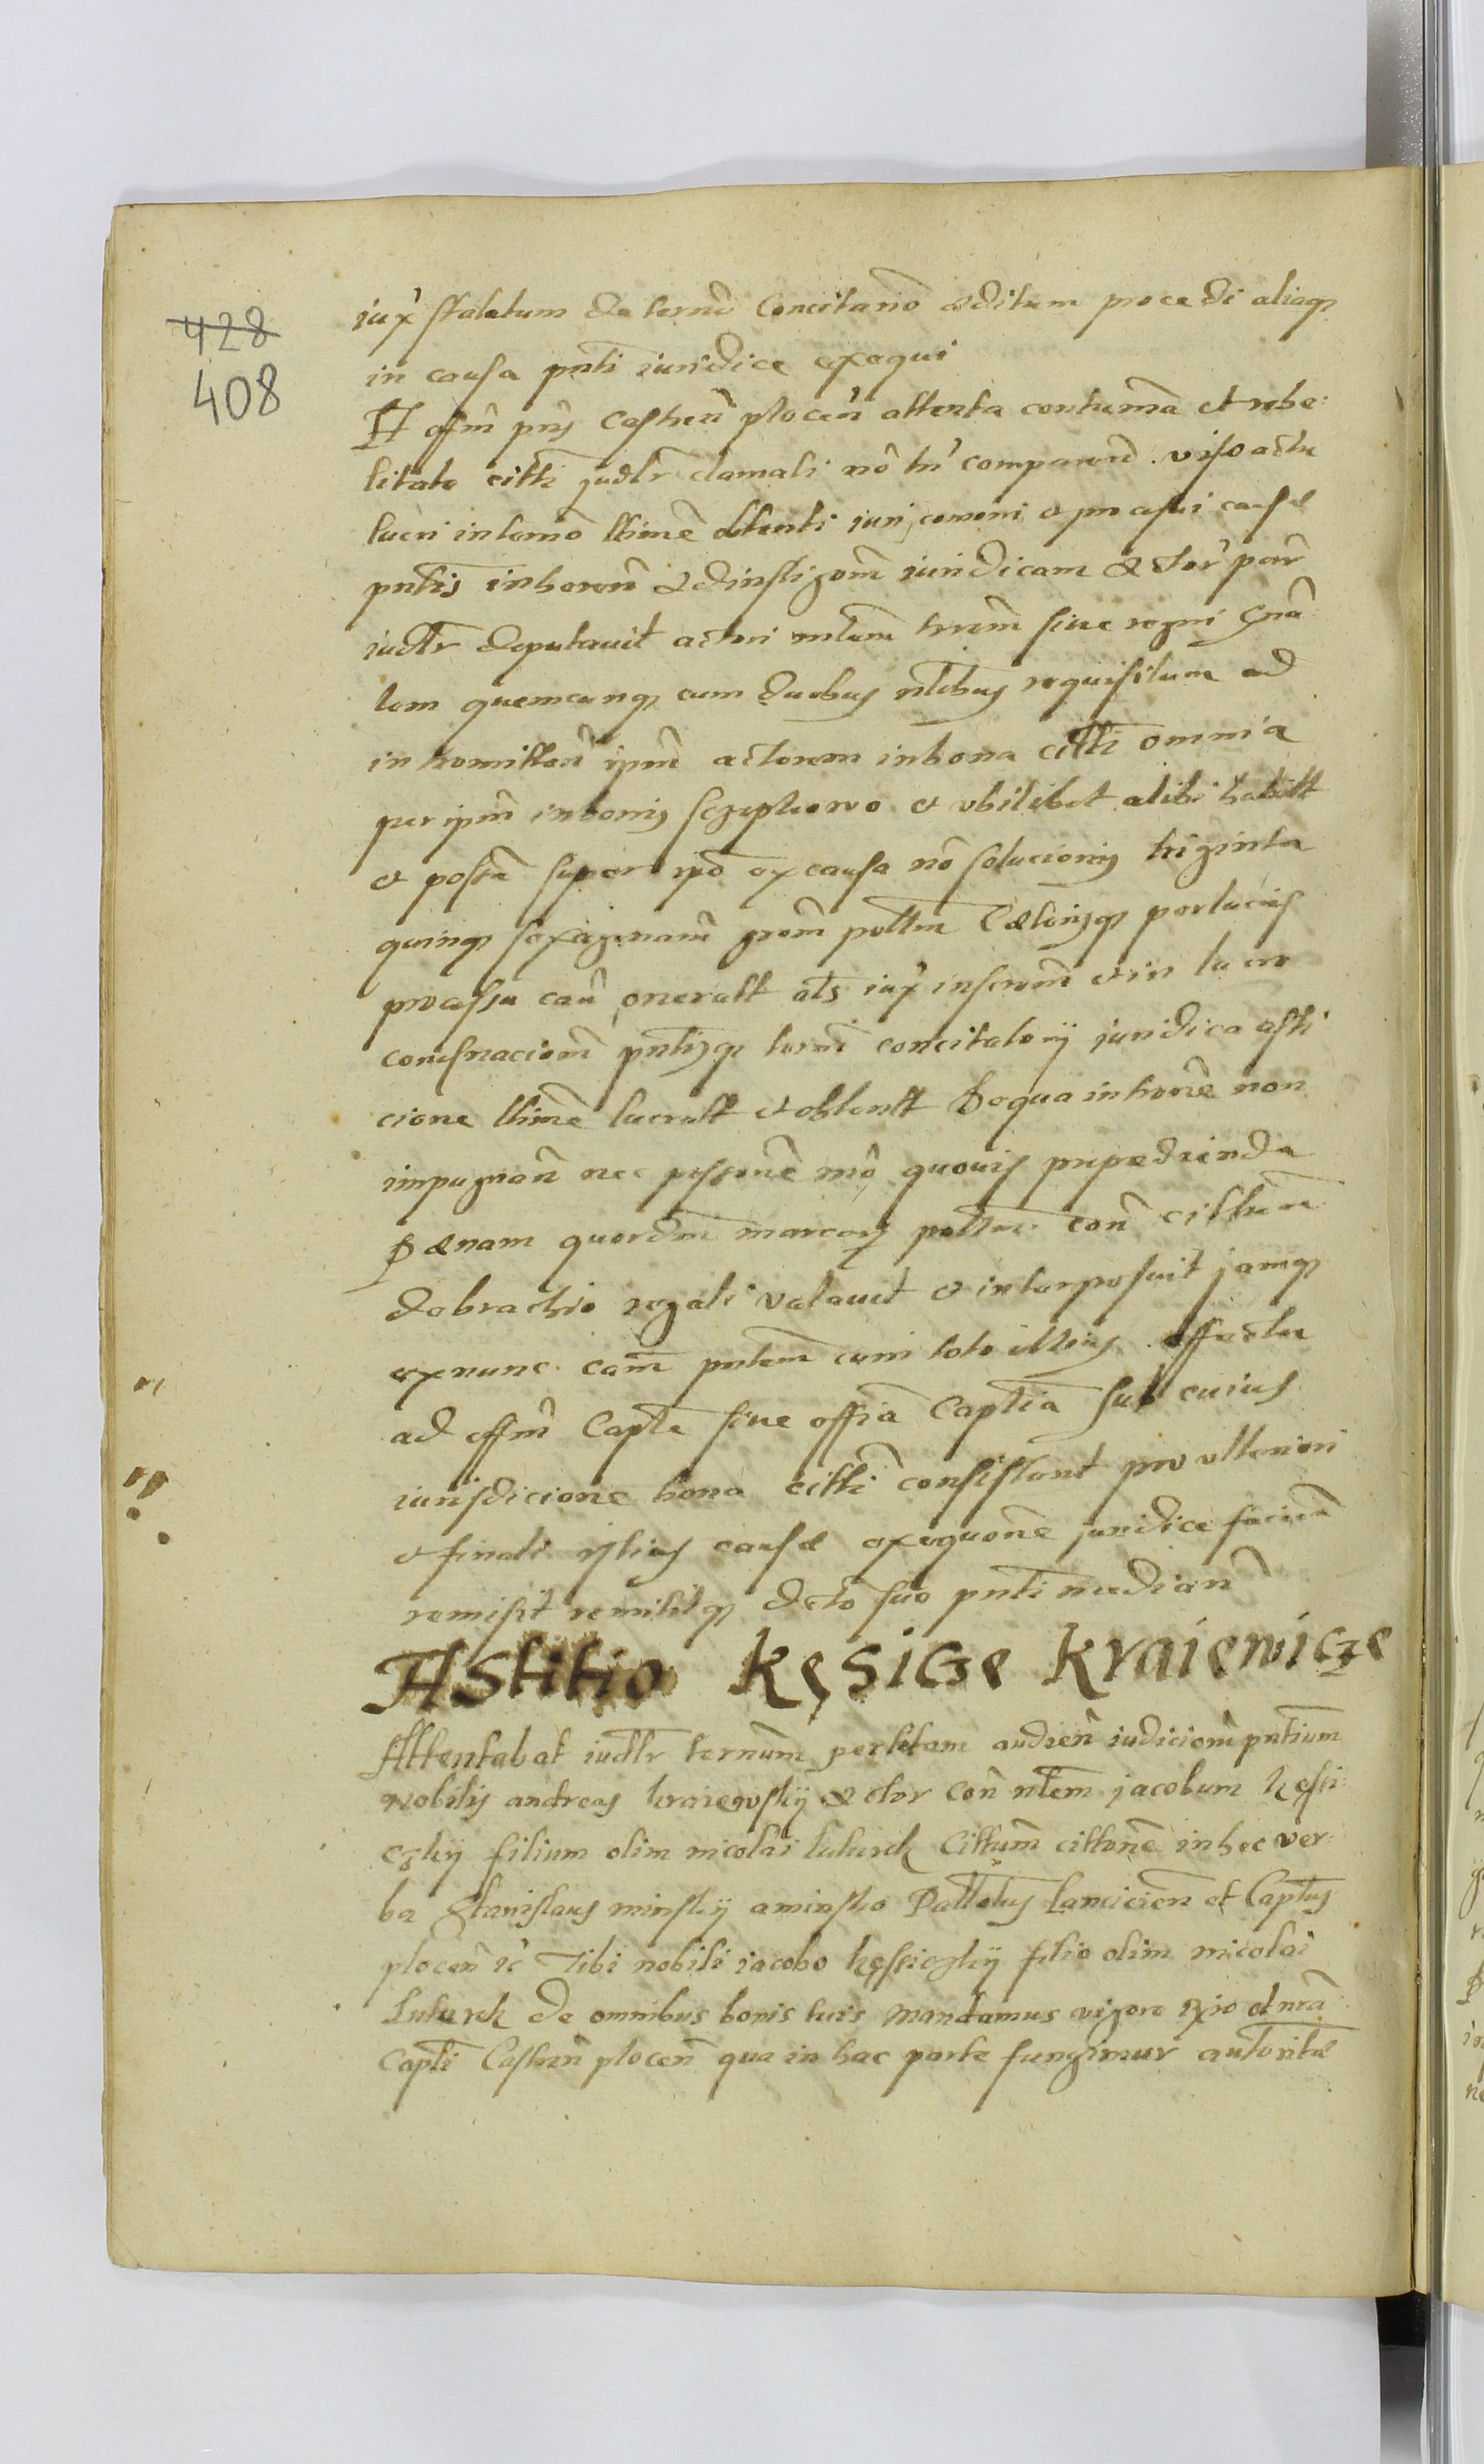 428
408
iux̃ statutum de termīo Concitatorio ęditum procedi aliaqȝ
in causa pñti iuridice exequi
Et offiu pñs Castreñ plocen̄ attenta contumã et rebe:
litate citti judlr clamati nō tñ comparentĩ viso actu
lucri in termō lltimẽ obtenti iuri comuni & processui causę
pñtis inheren̄ et ad instigoñem iuridicam Actor parĩ
iudlr deputauit actori mĩlem terrem siue regni Gñã
lem quemcunqȝ cum duobus nĩlibus requisitum ad
intromitteñ ipm̄ actorem in bona citti omnia
per ipm̄ in bonis Szczepkowo & vbilibet alibi habitt
& postã super ipõ ex causa nō solucionis triginta
quinqȝ sexagenarũ grom pollm Cętisqȝ per lucris
processu cañ oneratt als iux̃ inscronem et in lucro
condemnacionẽ pñtisqȝ termi concitatorÿ juridica asti
cione lltimẽ lucratt & obtentt De qua intronẽ non
impugnañ nec possonẽ mō quouis prepedienda
Pænam quordm marcarȝ pollm coñ cittum
de brachio regali valauit & interposuit jamqȝ
ex nunc cam̄ pñtem cum toto illius effectu
ad offm̄ Captĩ siue offiã Captĩã sub cuius
iurisdicione bona citti consistunt pro vlteriori
& finali istius causę exequonẽ juridice faciẽn
remisit remititqȝ decto suo pñti median̄
Astitio Kęsicze Kraiewicze
Attentabat iudlr ternum perlitam audien̄ iudicioru pñtium
Nobilis andreas kraiewskÿ Actor coñ nĩlem jacobum kęssi:
czkÿ filium olim nicolai Luturek Cittum cittonẽ in hec ver:
ba Stanislaus minskÿ a minsko Pallatus Lanciciēn et Captus
plocen̄ &c̃ Tibi nobili iacobo kęssiczkÿ filio olim nicolai
Luturek de omnibus bonis tuis Mandamus vigore Regio et nrã
Captĩ Castren̄ plocen̄ qua in hac parte fungimur autoritã